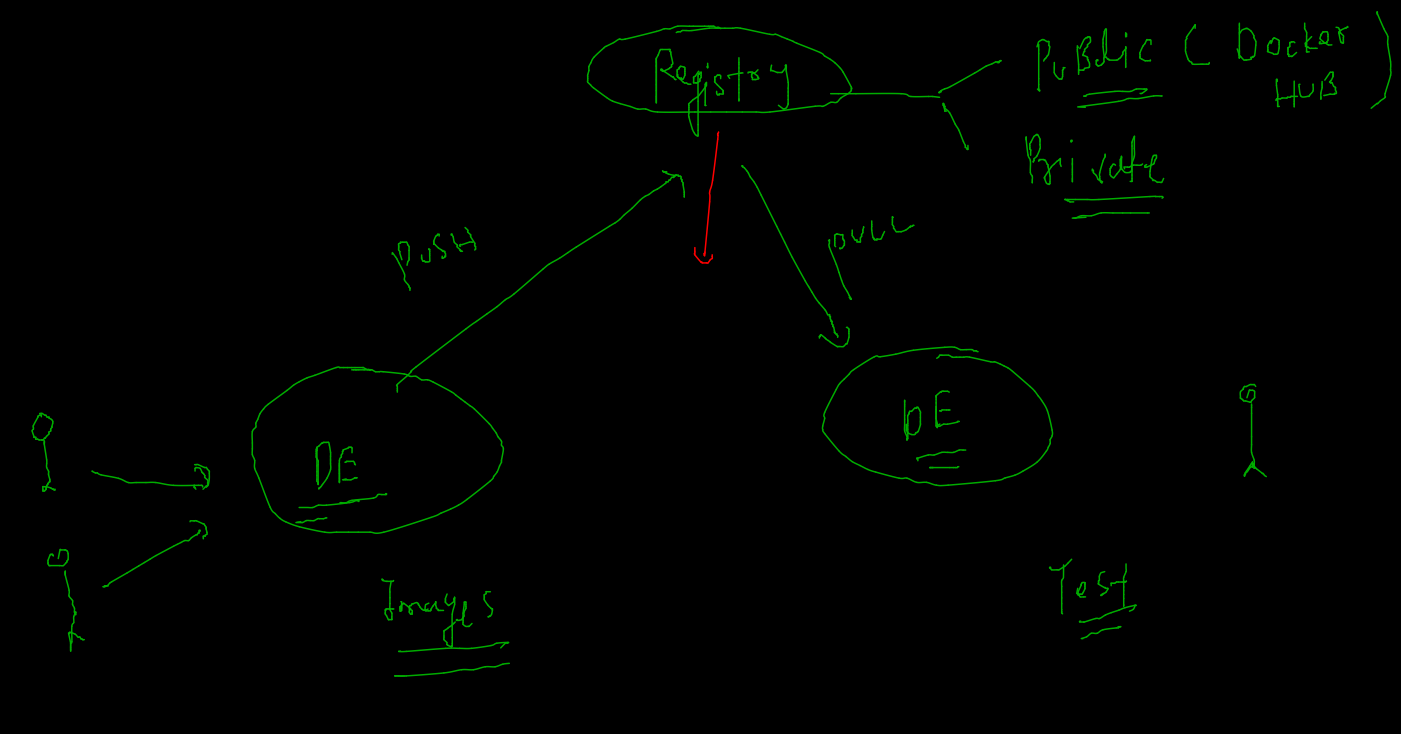 Registry
PuBlic ( Docker
HUB )
Private
PUSH
PULL
DE
DE
Images
Test